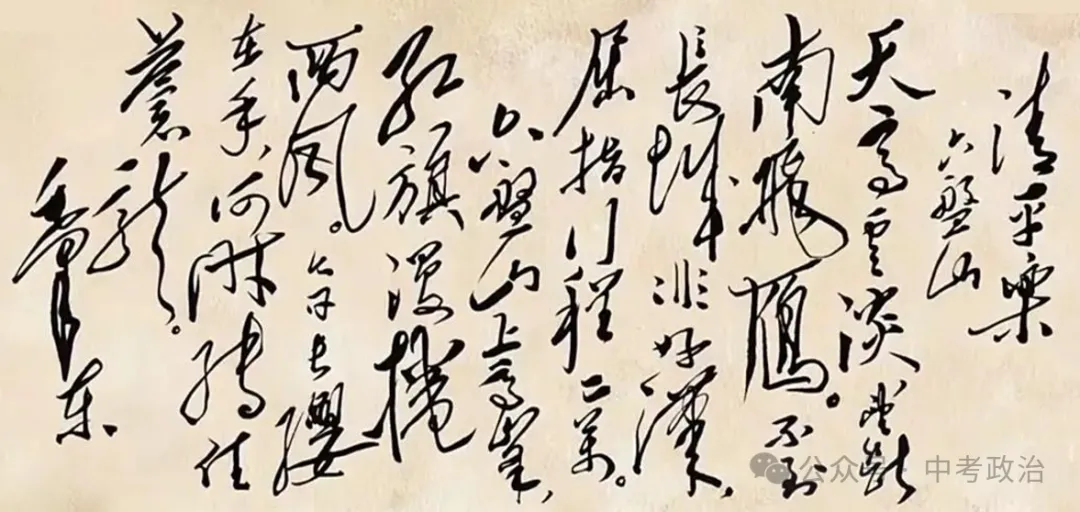 清平樂
六盤山
天高雲淡望断
南飛鴈。不到
長城非好漢、
屈指行程二萬。
六盤山上高峯、
红旗漫捲
西风。今日长缨
在手、何时缚住
蒼龍。
毛泽东
公众号·中考政治